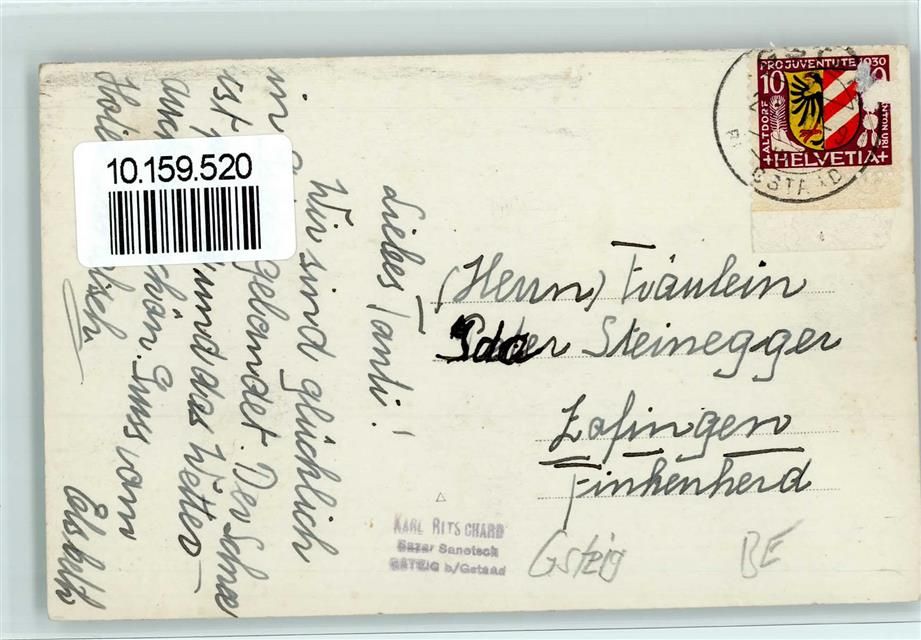 10.159.520
Liebes Tanti!
Wir sind glücklich
in gelandet. Der Schnee
ist und das Wetter
auch schön. Gruss von
Elsbeth
PRO JUVENTUTE 1930
10
ALTDORF
KANTON URI
+HELVETIA+
GSTAAD
(Herrn) Fräulein
Ida Steinegger
Zofingen
Finkenherd
KARL RITSCHARD
Bazar Sanetsch
GSTEIG b/Gstaad
Gsteig BE